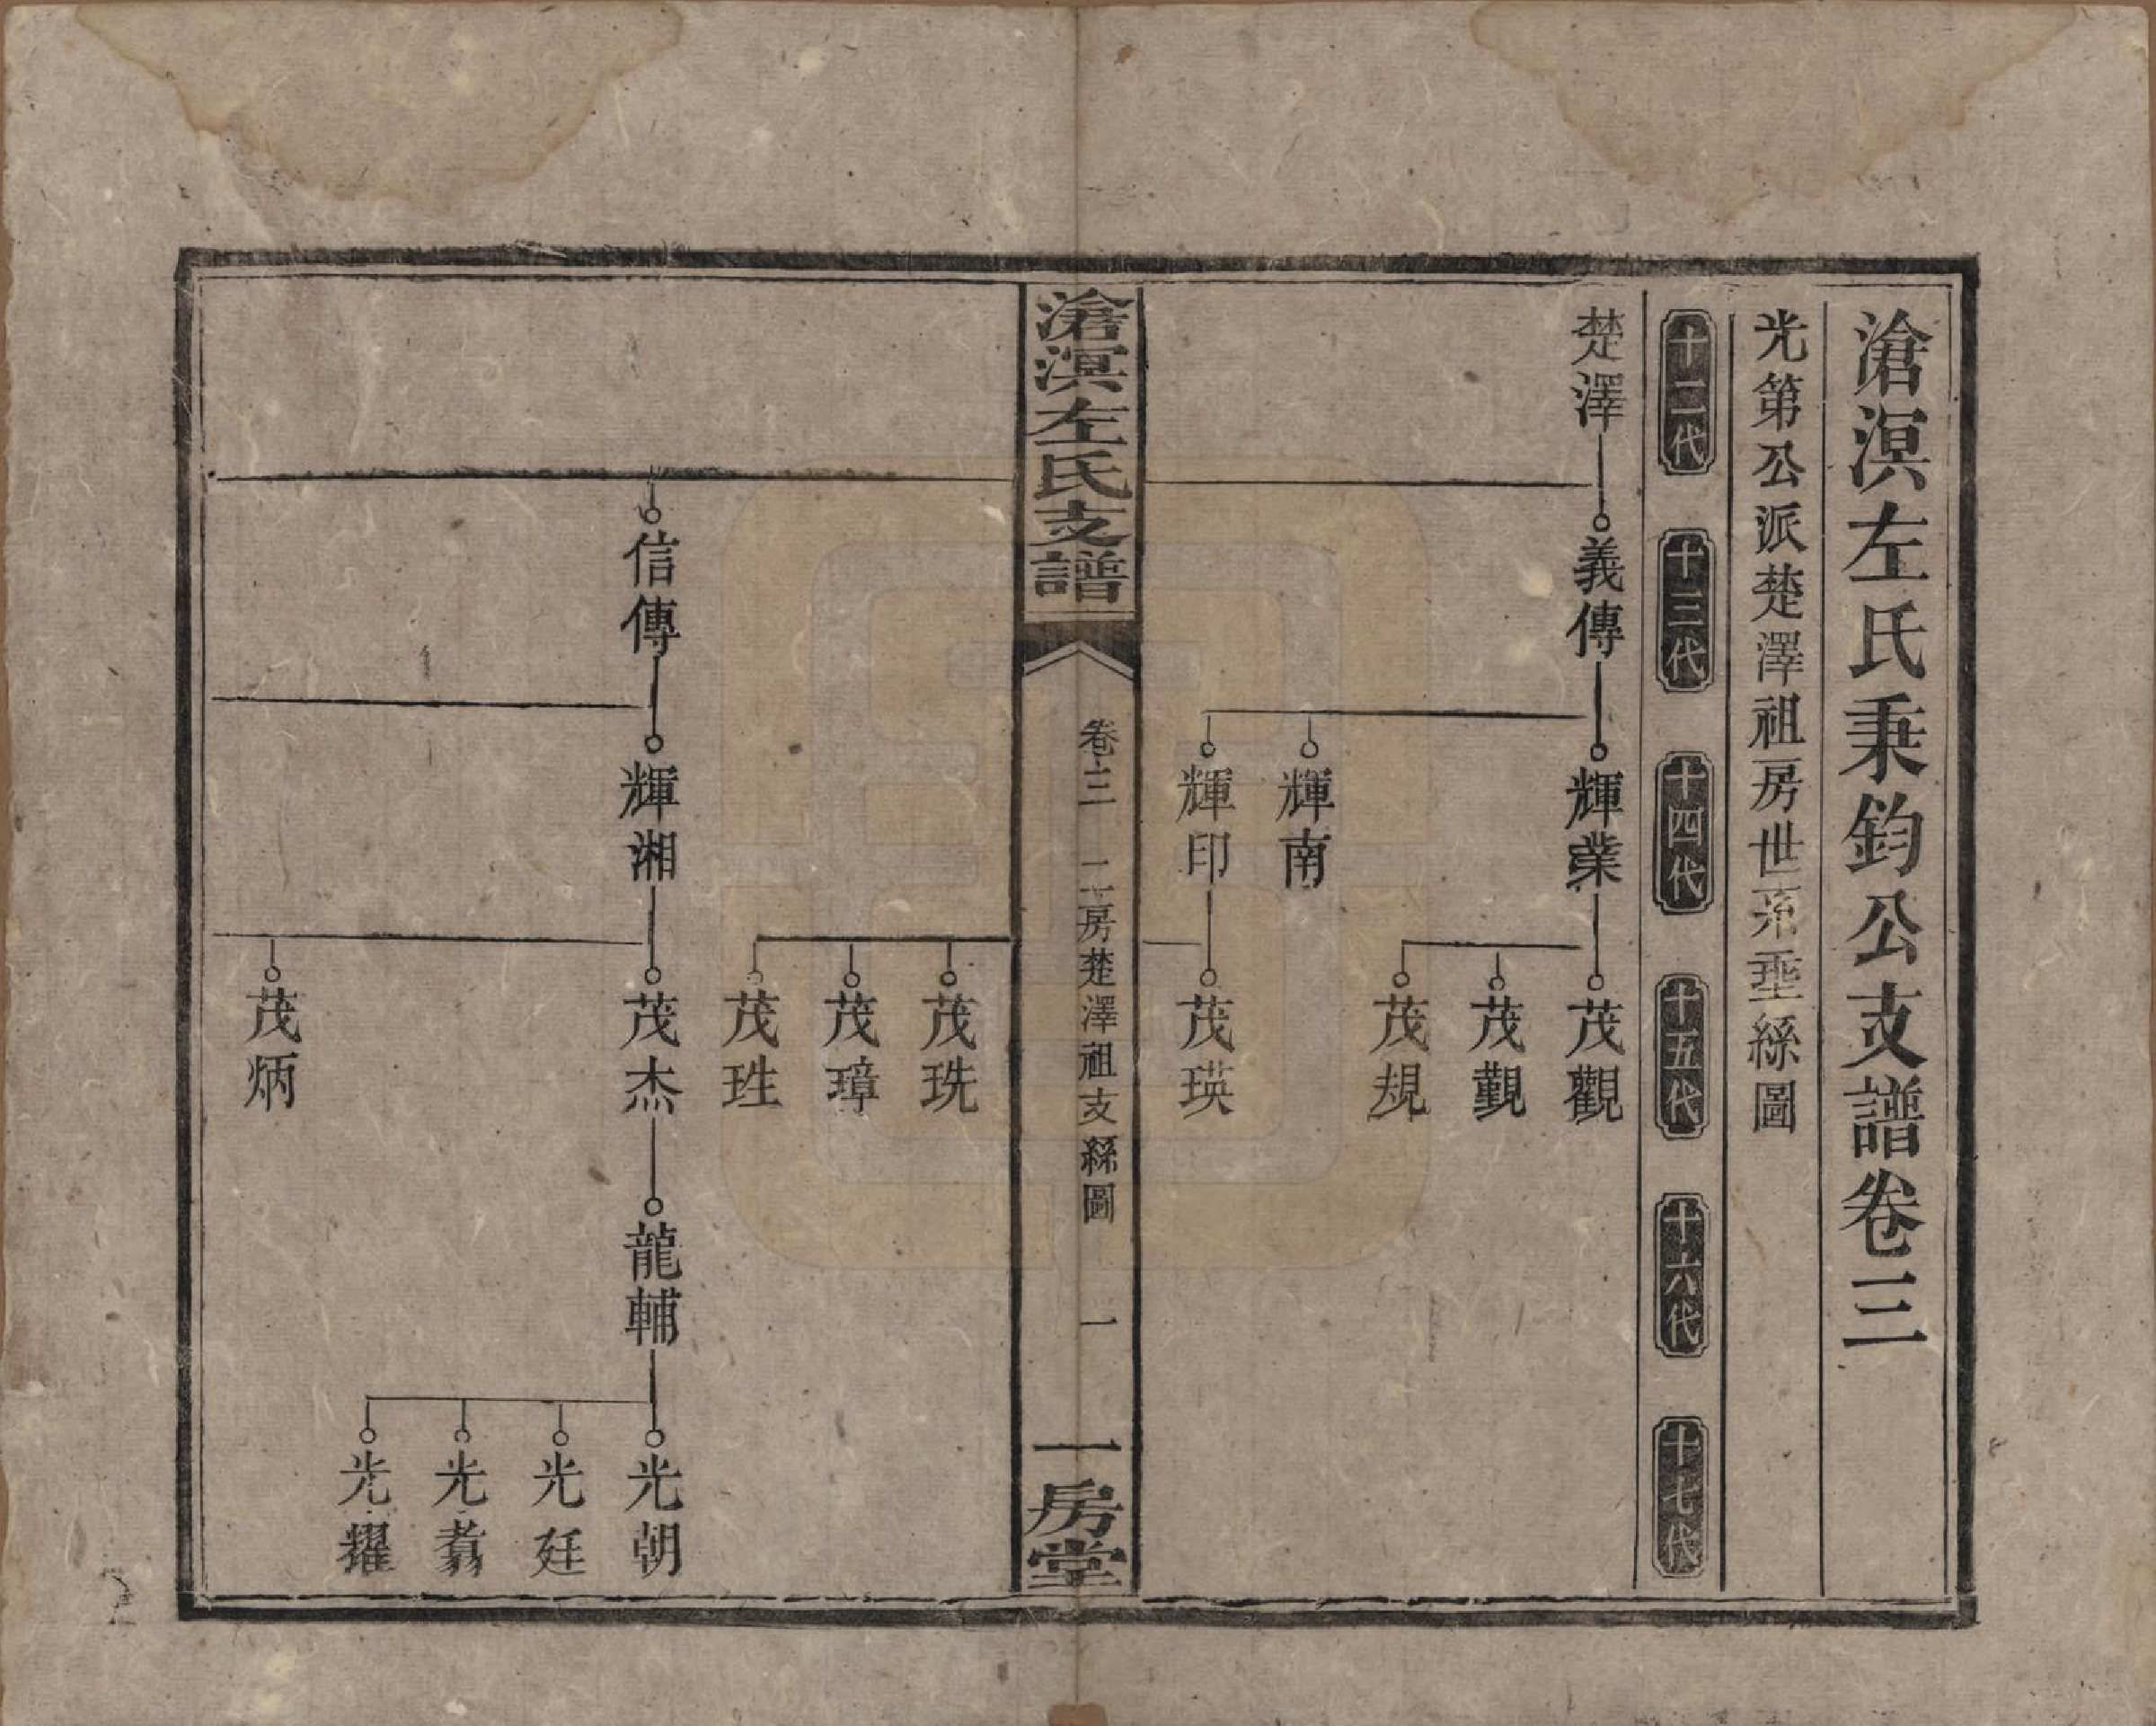 滄溟左氏秉鈞公支譜卷三
光第公派楚澤祖房世系埀絲圖
十二代 十三代 十四代 十五代 十六代 十七代
楚澤 義傳 輝業 茂觀
茂覲
茂規
輝南
輝印 茂瑛
滄溟左氏支譜 卷之三 二房楚澤祖支絲圖 一 一房堂
茂珗
茂璋
茂珄
信傳 輝湘 茂杰 龍輔 光朝
光廷
光翥
光耀
茂炳